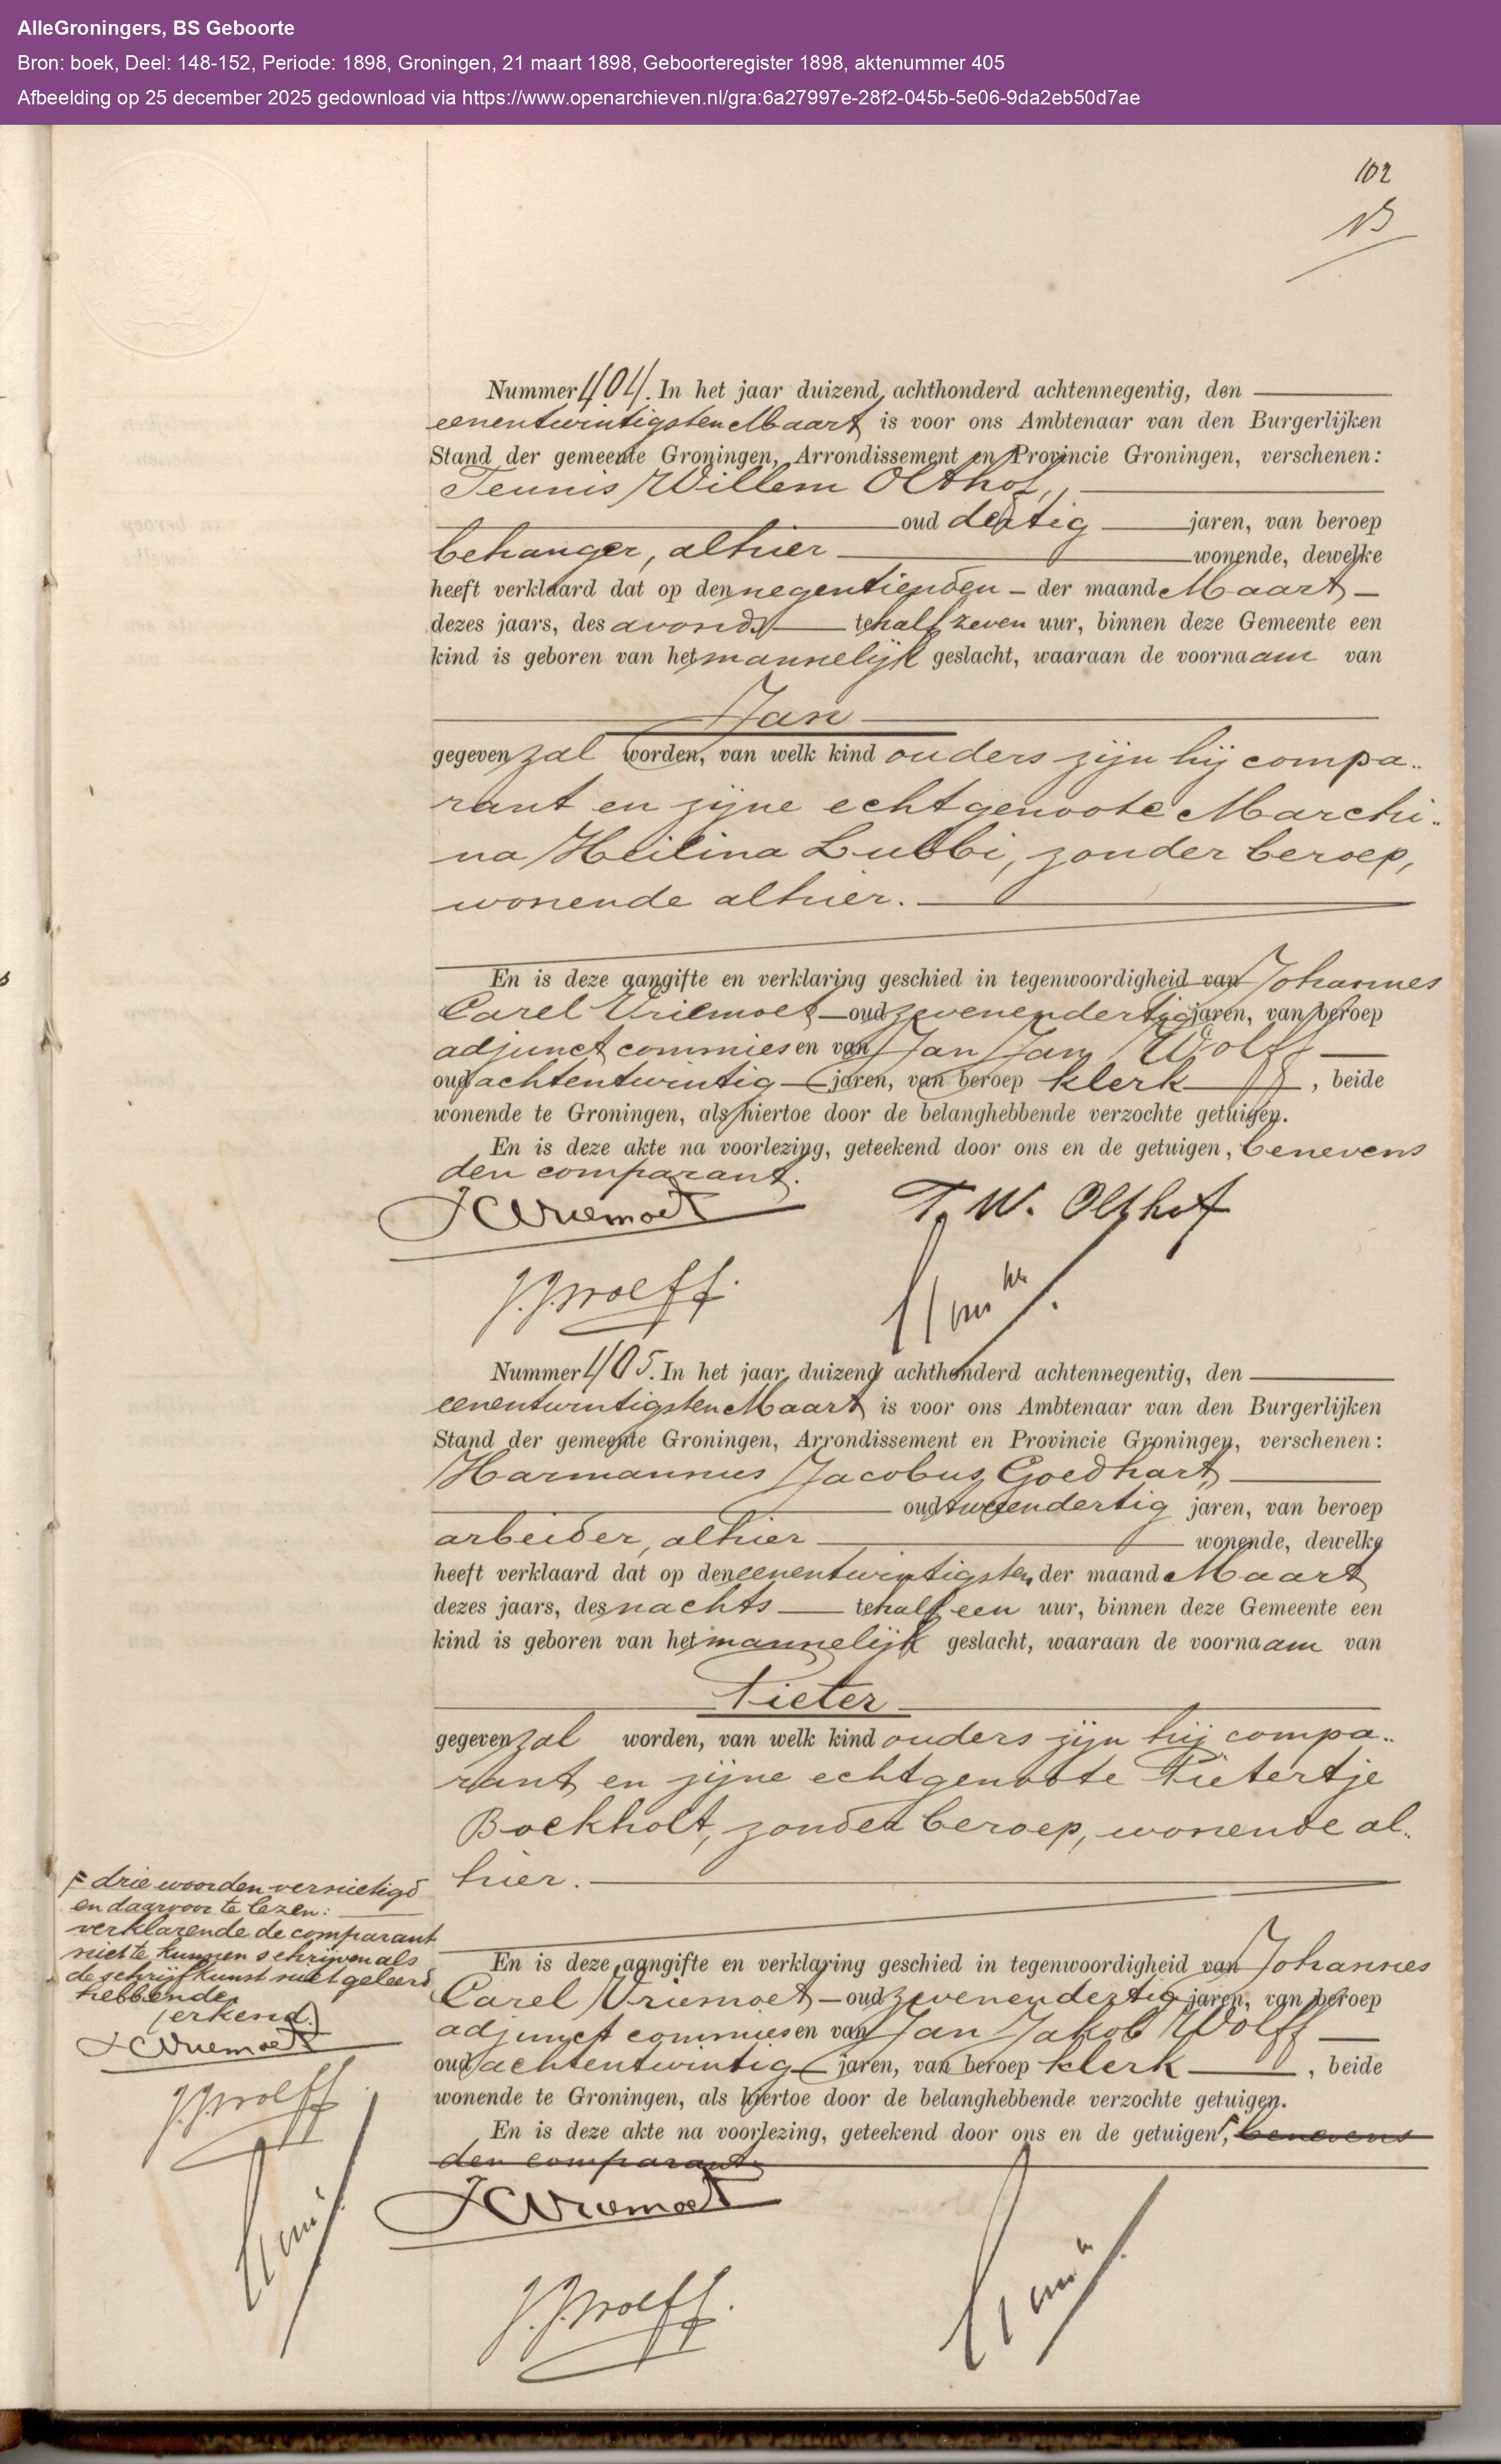 AlleGroningers, BS Geboorte
Bron: boek, Deel: 148-152, Periode: 1898, Groningen, 21 maart 1898, Geboorteregister 1898, aktenummer 405
Afbeelding op 25 december 2025 gedownload via https://www.openarchieven.nl/gra:6a27997e-28f2-045b-5e06-9da2eb50d7ae
102
Nummer 404. In het jaar duizend achthonderd achtennegentig, den
eenentwintigsten Maart is voor ons Ambtenaar van den Burgerlijken
Stand der gemeente Groningen, Arrondissement en Provincie Groningen, verschenen:
Teunis Willem Olthof,
oud dertig jaren, van beroep
behanger, alhier wonende, dewelke
heeft verklaard dat op den negentienden - der maand Maart -
dezes jaars, des avonds te half zeven uur, binnen deze Gemeente een
kind is geboren van het mannelijk geslacht, waaraan de voornaam van
Jan
gegeven zal worden, van welk kind ouders zijn hij compa..
rant en zijne echtgenoote Marchi..
na Heilina Lubbi, zonder beroep,
wonende alhier.
En is deze aangifte en verklaring geschied in tegenwoordigheid van Johannes
Carel Vriemoet - oud zevenendertig jaren, van beroep
adjunct commies en van Jan Jan Wolff
oud achtentwintig jaren, van beroep klerk, beide
wonende te Groningen, als hiertoe door de belanghebbende verzochte getuigen.
En is deze akte na voorlezing, geteekend door ons en de getuigen, benevens
den comparant.
JCVriemoet T. W. Olthof
J.J.Wolff.
Nummer 405. In het jaar duizend achthonderd achtennegentig, den
eenentwintigsten Maart is voor ons Ambtenaar van den Burgerlijken
Stand der gemeente Groningen, Arrondissement en Provincie Groningen, verschenen:
Harmannus Jacobus Goedhart,
oud tweeendertig jaren, van beroep
arbeider, alhier wonende, dewelke
heeft verklaard dat op den eenentwintigsten der maand Maart
dezes jaars, des nachts te half een uur, binnen deze Gemeente een
kind is geboren van het mannelijk geslacht, waaraan de voornaam van
Pieter
gegeven zal worden, van welk kind ouders zijn hij compa..
rant en zijne echtgenoote Pietertje
Boekholt, zonder beroep, wonende al..
hier.
En is deze aangifte en verklaring geschied in tegenwoordigheid van Johannes
Carel Vriemoet - oud zevenendertig jaren, van beroep
adjunct commies en van Jan Jakob Wolff
oud achtentwintig jaren, van beroep klerk, beide
wonende te Groningen, als hiertoe door de belanghebbende verzochte getuigen.
En is deze akte na voorlezing, geteekend door ons en de getuigen, benevens
den comparant.
JCVriemoet
J.J.Wolff.
drie woorden vernietigd
en daarvoor te lezen:
verklarende de comparant
niet te kunnen schrijven als
de schrijfkunst niet geleerd
hebbende,
(erkend.)
JCVriemoet
J.J.Wolff